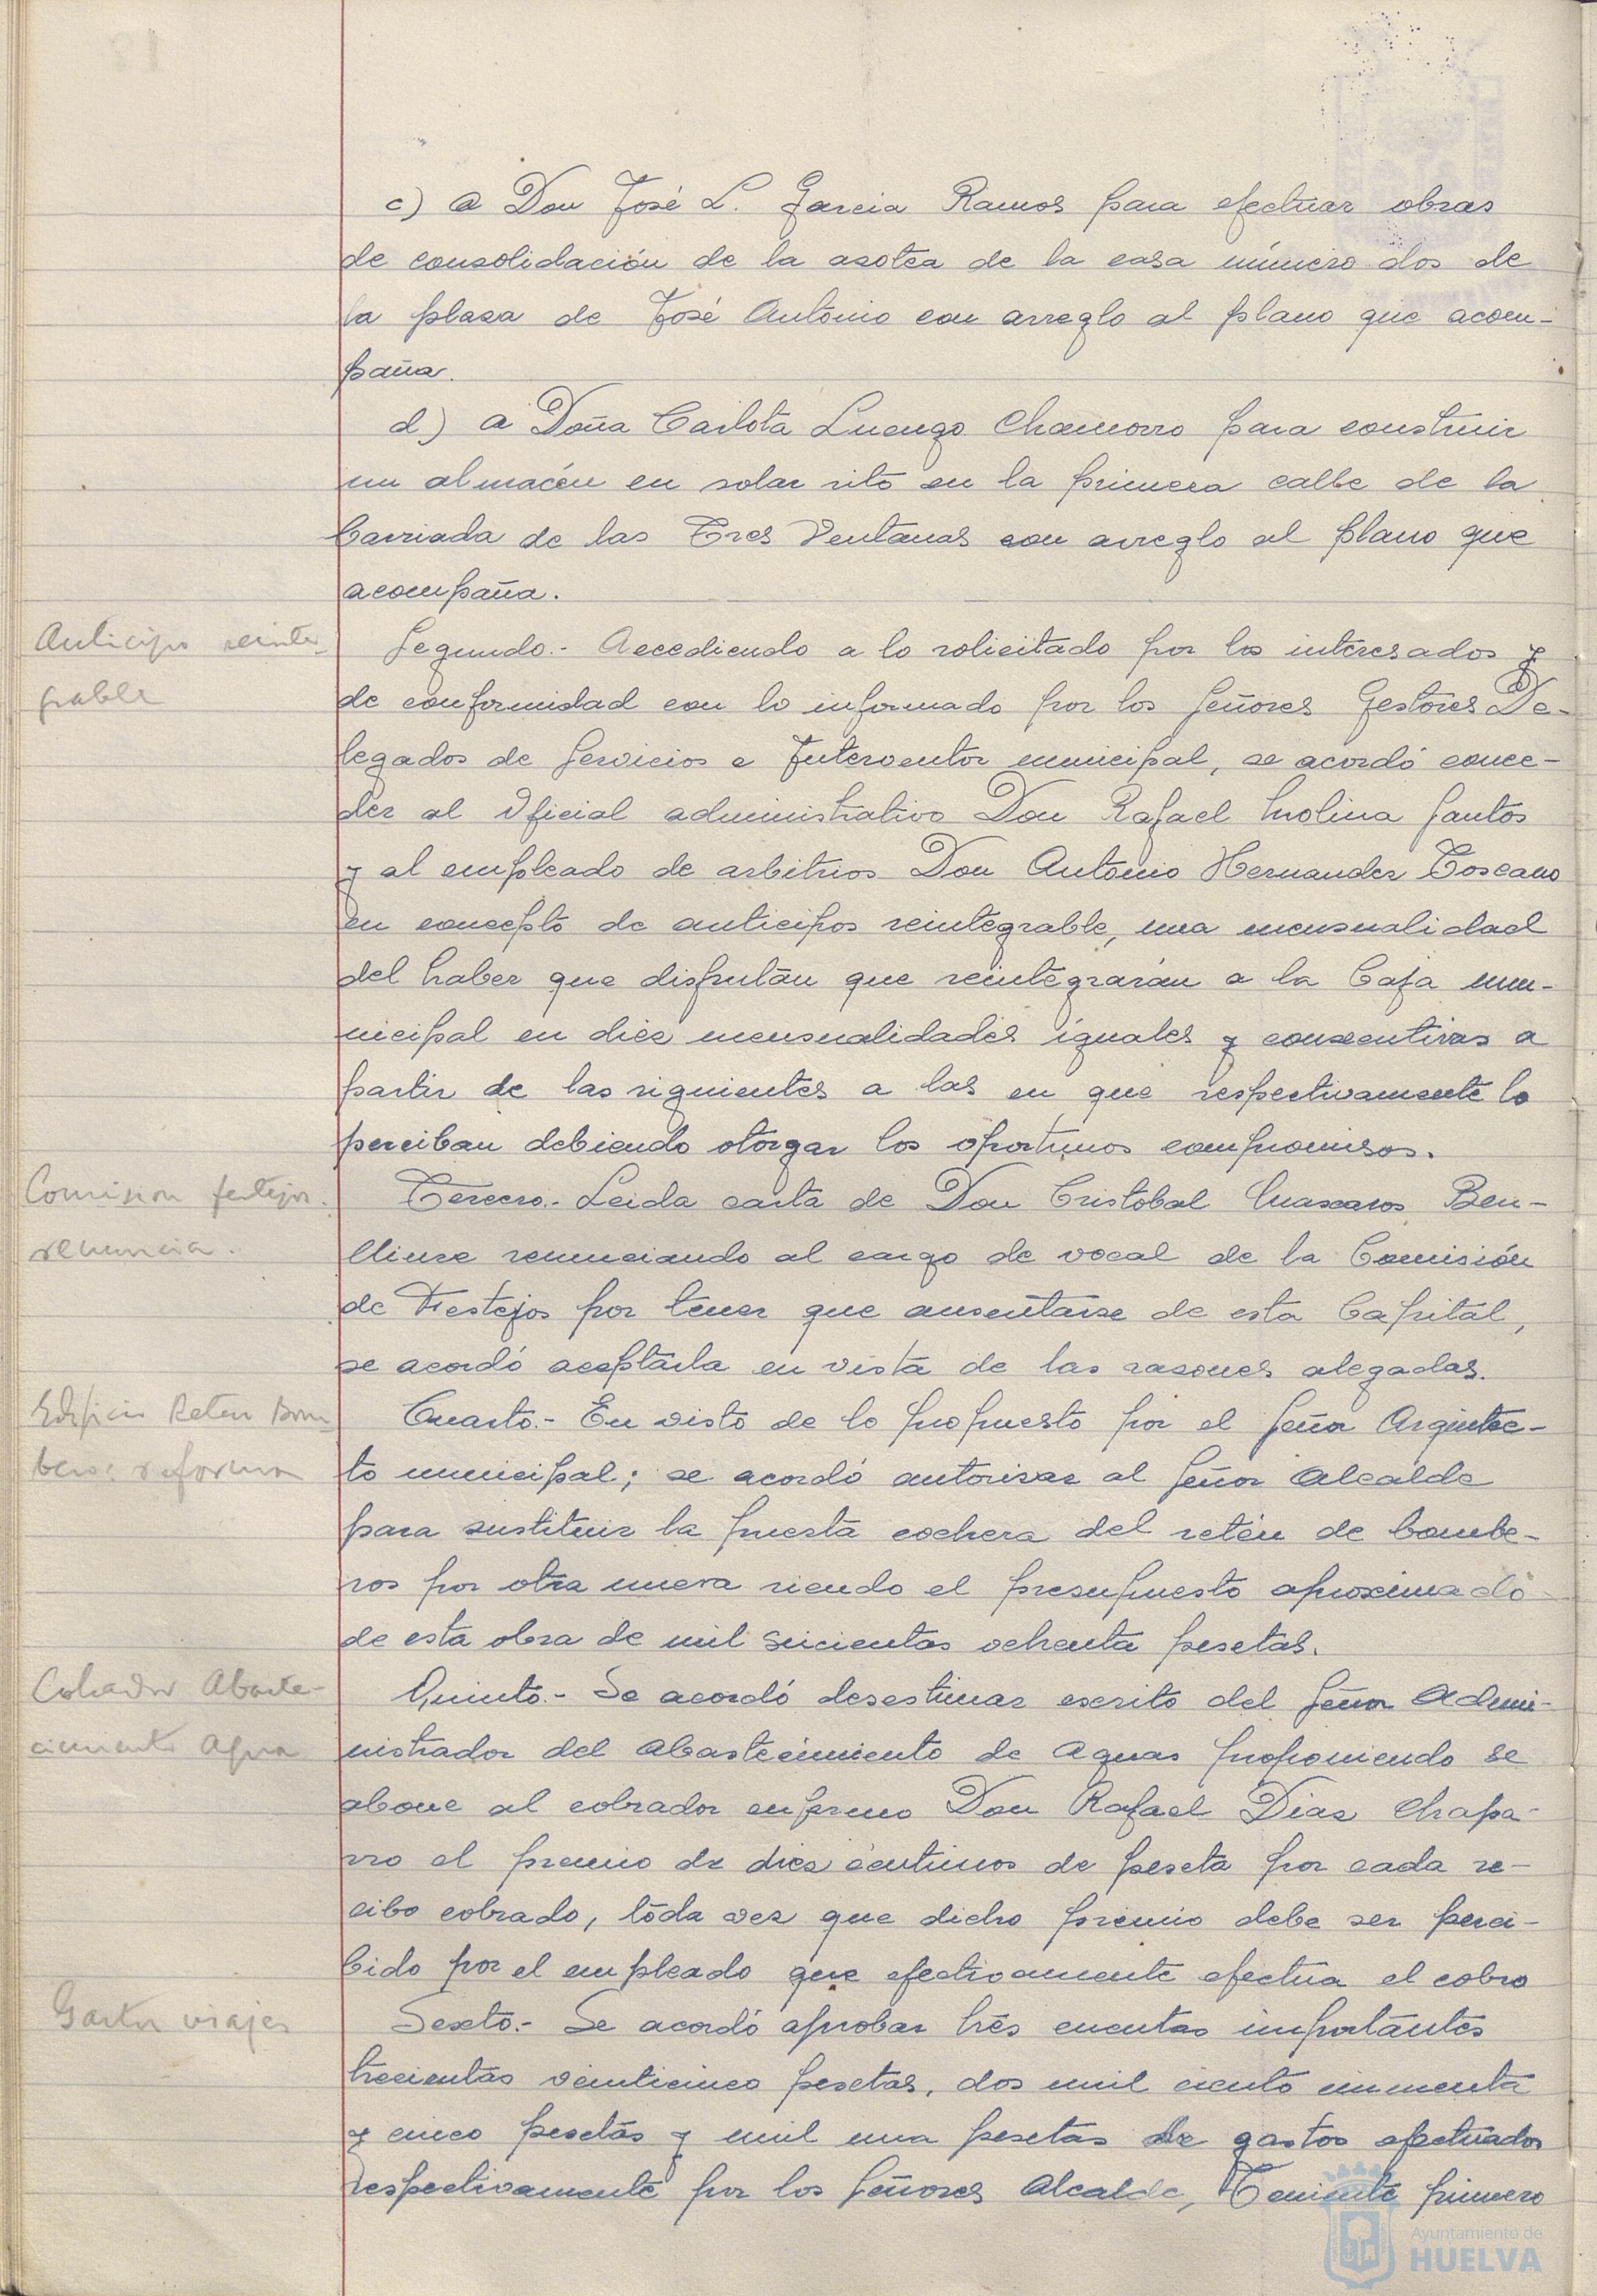 c) a Don José L. Garcia Ramos para efectuar obras
de consolidación de la azotea de la casa número dos de
la plaza de José Antonio con arreglo al plano que acom-
paña.
d) a Doña Carlota Luengo Chamorro para construir
un almacén en solar sito en la primera calle de la
barriada de las Tres Ventanas con arreglo al plano que
acompaña.
Anticipo reinte-
grable
Segundo.- Accediendo a lo solicitado por los interesados y
de conformidad con lo informado por los Señores Gestores De-
legados de Servicios e Interventor municipal, se acordó conce-
der al Oficial administrativo Don Rafael Molina Santos
y al empleado de arbitrios Don Antonio Hernandez Toscano
en concepto de anticipos reintegrable, una mensualidad
del haber que disfrutan que reintegrarán a la Caja mu-
nicipal en diez mensualidades iguales y consecutivas a
partir de las siguientes a las en que respectivamente lo
perciban debiendo otorgar los oportunos compromisos.
Comision festejos.
renuncia.
Tercero.- Leida carta de Don Cristobal Ben-
lliure renunciando al cargo de vocal de la Comisión
de Festejos por tener que ausentarse de esta Capital,
se acordó aceptarla en vista de las razones alegadas.
Edificio Reten Bom
beros reforma
Cuarto.- En visto de lo propuesto por el Señor Arquitec-
to municipal; se acordó autorizar al Señor Alcalde
para sustituir la puerta cochera del retén de bombe-
ros por otra nueva siendo el presupuesto aproximado
de esta obra de mil seicientas ochenta pesetas.
Cobrador Abaste-
cimiento Agua
Quinto.- Se acordó desestimar escrito del Señor Admi-
nistrador del Abastecimiento de Aguas proponiendo se
abone al cobrador enfermo Don Rafael Diaz Chapa-
rro el premio de diez centimos de peseta por cada re-
cibo cobrado, toda vez que dicho premio debe ser perci-
bido por el empleado que efectivamente efectúa el cobro
Gastos viajes
Sexto.- Se acordó aprobar trés cuentas importantes
trecientas veinticinco pesetas, dos mil ciento cincuenta
y cinco pesetas y mil una pesetas de gastos efectuados
respectivamente por los Señores Alcalde, Teniente primero
Ayuntamiento de
HUELVA